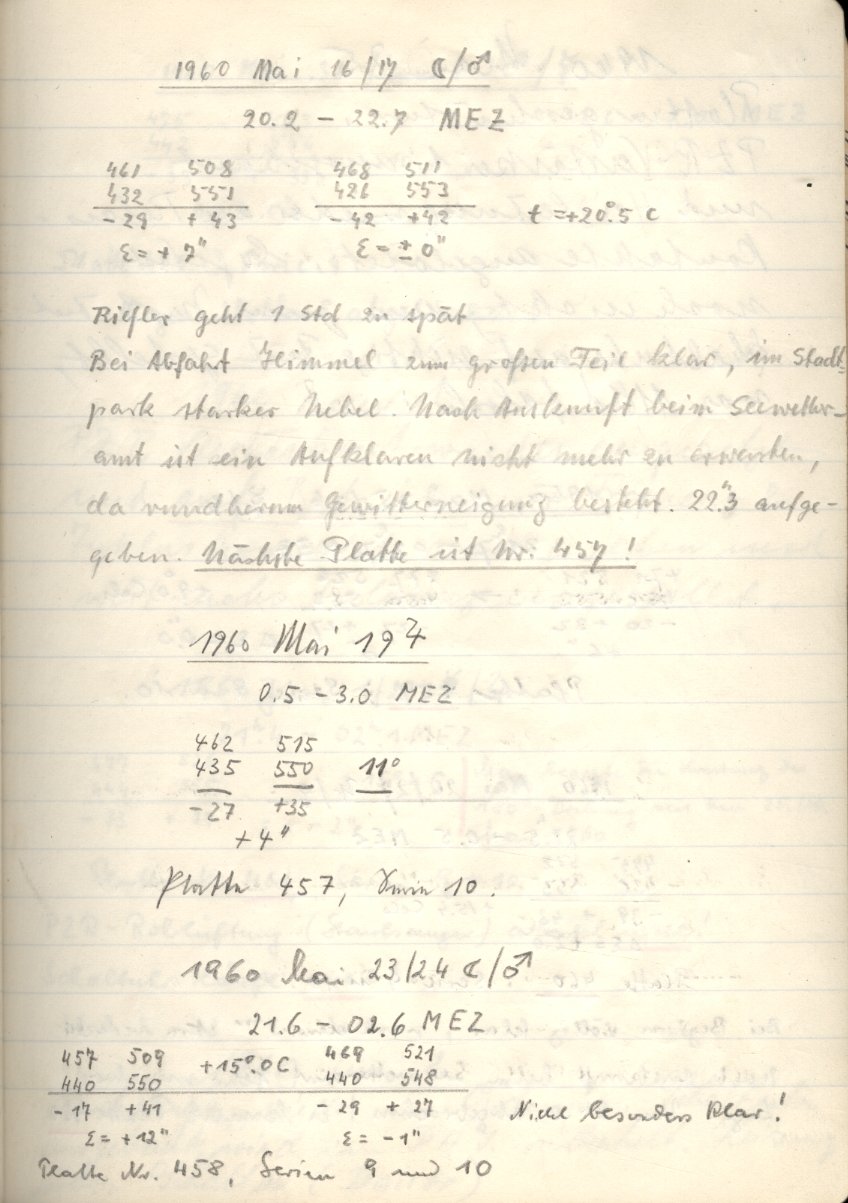 1960 Mai 16/17 ☾/♂
20.2 – 22.7 MEZ
461 508 468 511
432 551 426 553
- 29 + 43 - 42 +42 t = +20°.5 C
Ɛ = + 7" Ɛ = ± 0"
Riefler geht 1 Std zu spät
Bei Abfahrt Himmel zum großen Teil klar, im Stadt-
park starker Nebel. Nach Auskunft beim Seewetter-
amt ist ein Aufklaren nicht mehr zu erwarten,
da rundherum Gewitterneigung besteht. 22.h3 aufge-
geben. Nächste Platte ist Nr: 457!
1960 Mai 19 ♃
0.5 – 3.0 MEZ
462 515
435 550 11°
-27 +35
+4"
Platte 457, Serie 10.
1960 Mai 23/24 ☾/♂
21.6 – 02.6 MEZ
457 509 +15°.0C 469 521
440 550 440 548
- 17 +41 - 29 + 27 Nicht besonders klar!
Ɛ = +12" Ɛ = -1"
Platte Nr. 458, Serien 9 und 10